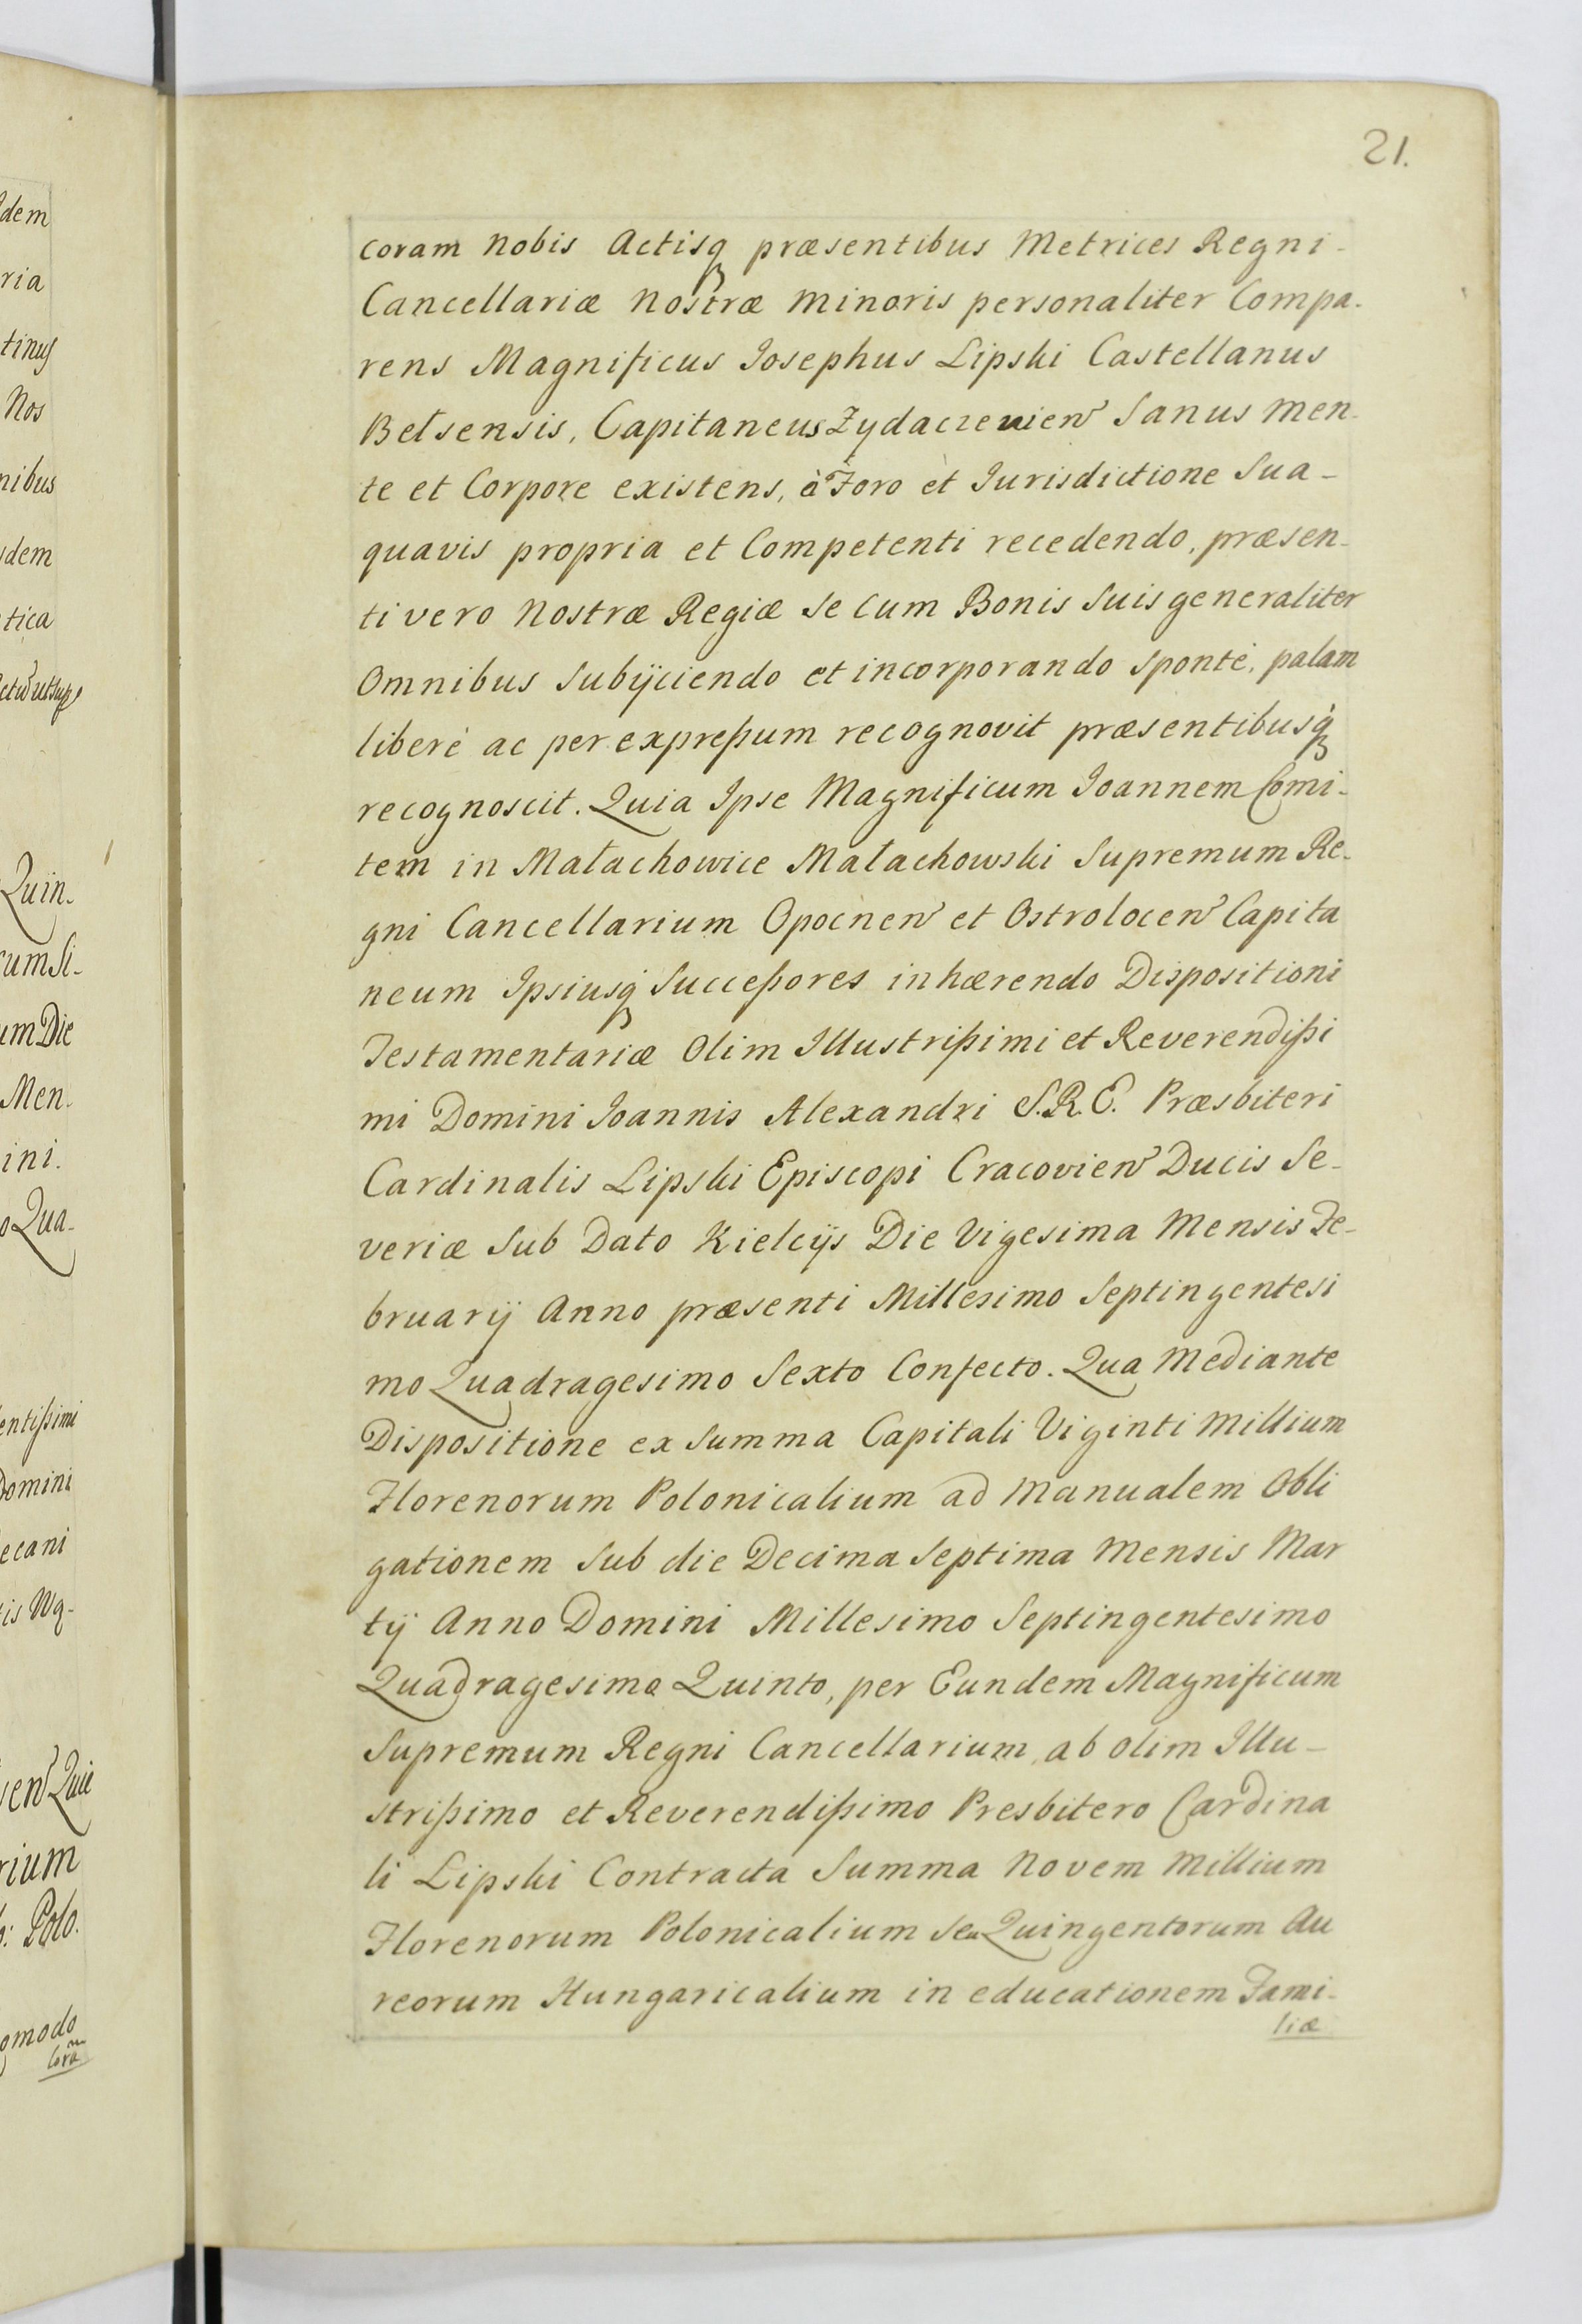 21.
coram nobis Actisq præsentibus Metrices Regni-
Cancellariæ Nostræ Minoris personaliter Compa-
rens Magnificus Josephus Lipski Castellanus
Bełsensis, Capitaneus Zydaczevien Sanus men-
te et Corpore existens, à Foro et Jurisdictione Sua-
quavis propria et Competenti recedendo, præsen-
ti vero Nostræ Regiæ se cum Bonis Suis generaliter
Omnibus Subijciendo et incorporando sponte, palam
liberè ac per expreßum recognovit præsentibusq
recognoscit. Quia Ipse Magnificum Joannem Comi-
tem in Małachowice Małachowski Supremum Re-
gni Cancellarium Opocnen et Ostrolocen Capita
neum Ipsiusq Succeßores inhærendo Dispositioni
Testamentariæ Olim Illustrißimi et Reverendißi
mi Domini Joannis Alexandri S.R.E. Præsbiteri
Cardinalis Lipski Episcopi Cracovien Ducis Se-
veriæ Sub Dato Kielcijs Die Vigesima Mensis Fe-
bruarij Anno præsenti Millesimo Septingentesi
mo Quadragesimo Sexto Confecto. Qua Mediante
Dispositione ex Summa Capitali Viginti Millium
Florenorum Polonicalium ad Manualem Obli
gationem Sub die Decima Septima Mensis Mar
tij Anno Domini Millesimo Septingentesimo
Quadragesimo Quinto, per Eundem Magnificum
Supremum Regni Cancellarium, ab olim Illu-
strißimo et Reverendißimo Presbitero Cardina
li Lipski Contracta Summa Novem Millium
Florenorum Polonicalium seu Quingentorum Au
reorum Hungaricalium in educationem Fami-
liæ